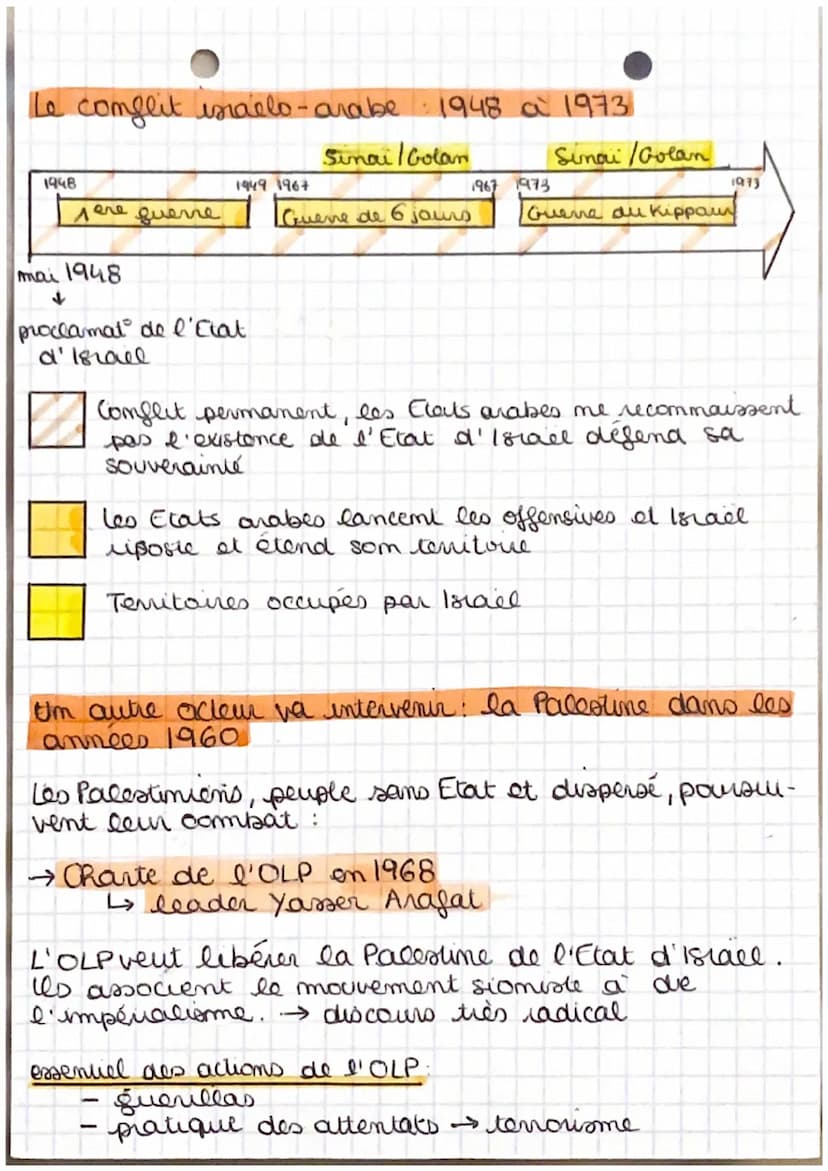 Le conflit israélo-arabe : 1948 à 1973
Sinaï/Golan
Sinaï/Golan
1948
1949
1967
1967
1973
1973
1ère guerre
Guerre de 6 jours
Guerre du Kippour
mai 1948
↓
proclamat° de l'Etat
d'Israël
Conflit permanent, les Etats arabes ne reconnaissent
pas l'existence de l'Etat d'Israël défend sa
souverainté
Les Etats arabes lancent les offensives et Israël
riposte et étend son territoire
Territoires occupés par Israël
Un autre acteur va intervenir : la Palestine dans les
années 1960
Les Palestiniens, peuple sans Etat et dispersé, poursui-
vent leur combat :
→ Charte de l'OLP en 1968
↳ leader Yasser Arafat
L'OLP veut libérer la Palestine de l'Etat d'Israël.
Ils associent le mouvement sioniste à de
l'impérialisme. → discours très radical
essentiel des actions de l'OLP:
- guerillas
- pratique des attentats → terrorisme